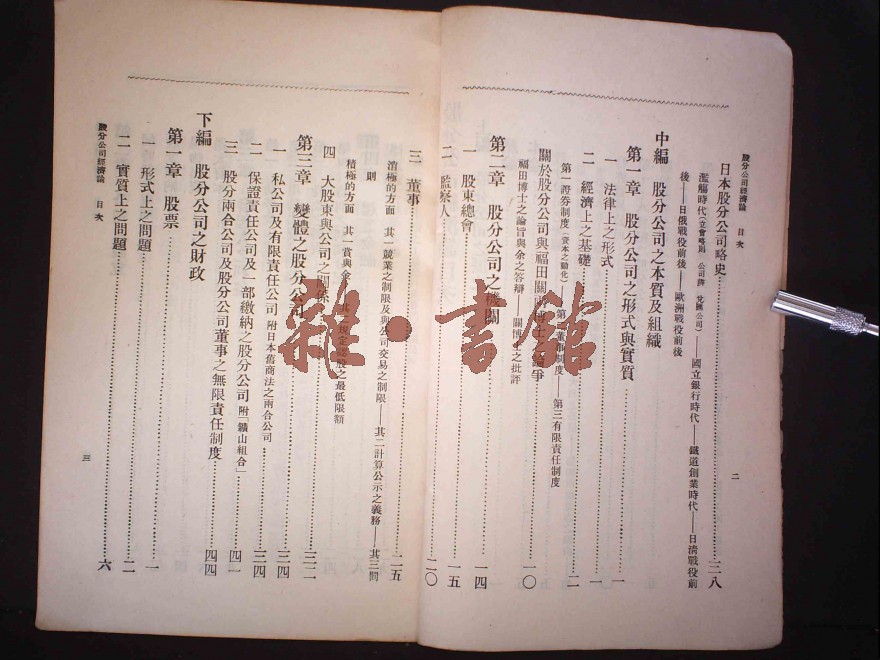 股分公司經濟論　目次
日本股分公司略史……三八
濫觴時代(立會略則　公司辨　兌匯公司)——國立銀行時代——鐵道創業時代——日淸戰役前
後——日俄戰役前後——歐洲戰役前後
中編　股分公司之本質及組織
第一章　股分公司之形式與實質
一　法律上之形式……一
二　經濟上之基礎……二
第一證券制度(資本之動化)——第二董事制度——第三有限責任制度
關於股分公司與福田關兩博士之論爭……一〇
福田博士之論旨與余之答辯——關博士之批評
第二章　股分公司之機關
一　股東總會……一四
一五
二　監察人……二〇
二
股分公司經濟論　目次
三　董事……二五
消極的方面　其一競業之制限及與公司交易之制限——其二計算公示之義務——其三罰
則
積極的方面　其一賞與金　規定認股之最低限額
四　大股東與公司之關係
第三章　變體之股分公司……三二
一　私公司及有限責任公司　附日本舊商法之兩合公司……三四
二　保證責任公司及一部繳納之股分公司　附「鑛山組合」……三四
三　股分兩合公司及股分公司董事之無限責任制度……四一
四四
下編　股分公司之財政
第一章　股票……一
一　形式上之問題……二
二　實質上之問題……六
三
雜·書館